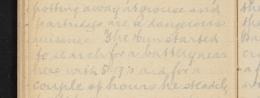 potting away at grouse and
partridge are a dangerous
nuisance. The Hun started
to search for a battery near
here with 5.9's and for a
couple of hours he steadily